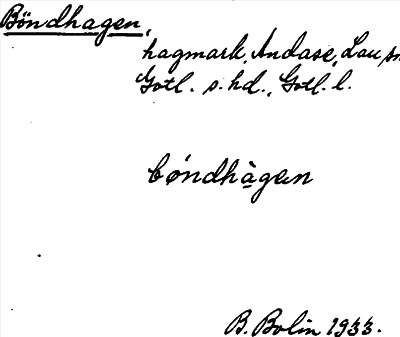 Böndhagen,
hagmark, Andase, Lau sn
Gotl. s. hd., Gotl. l.
bǿndhàgen
B. Bolin 1933.